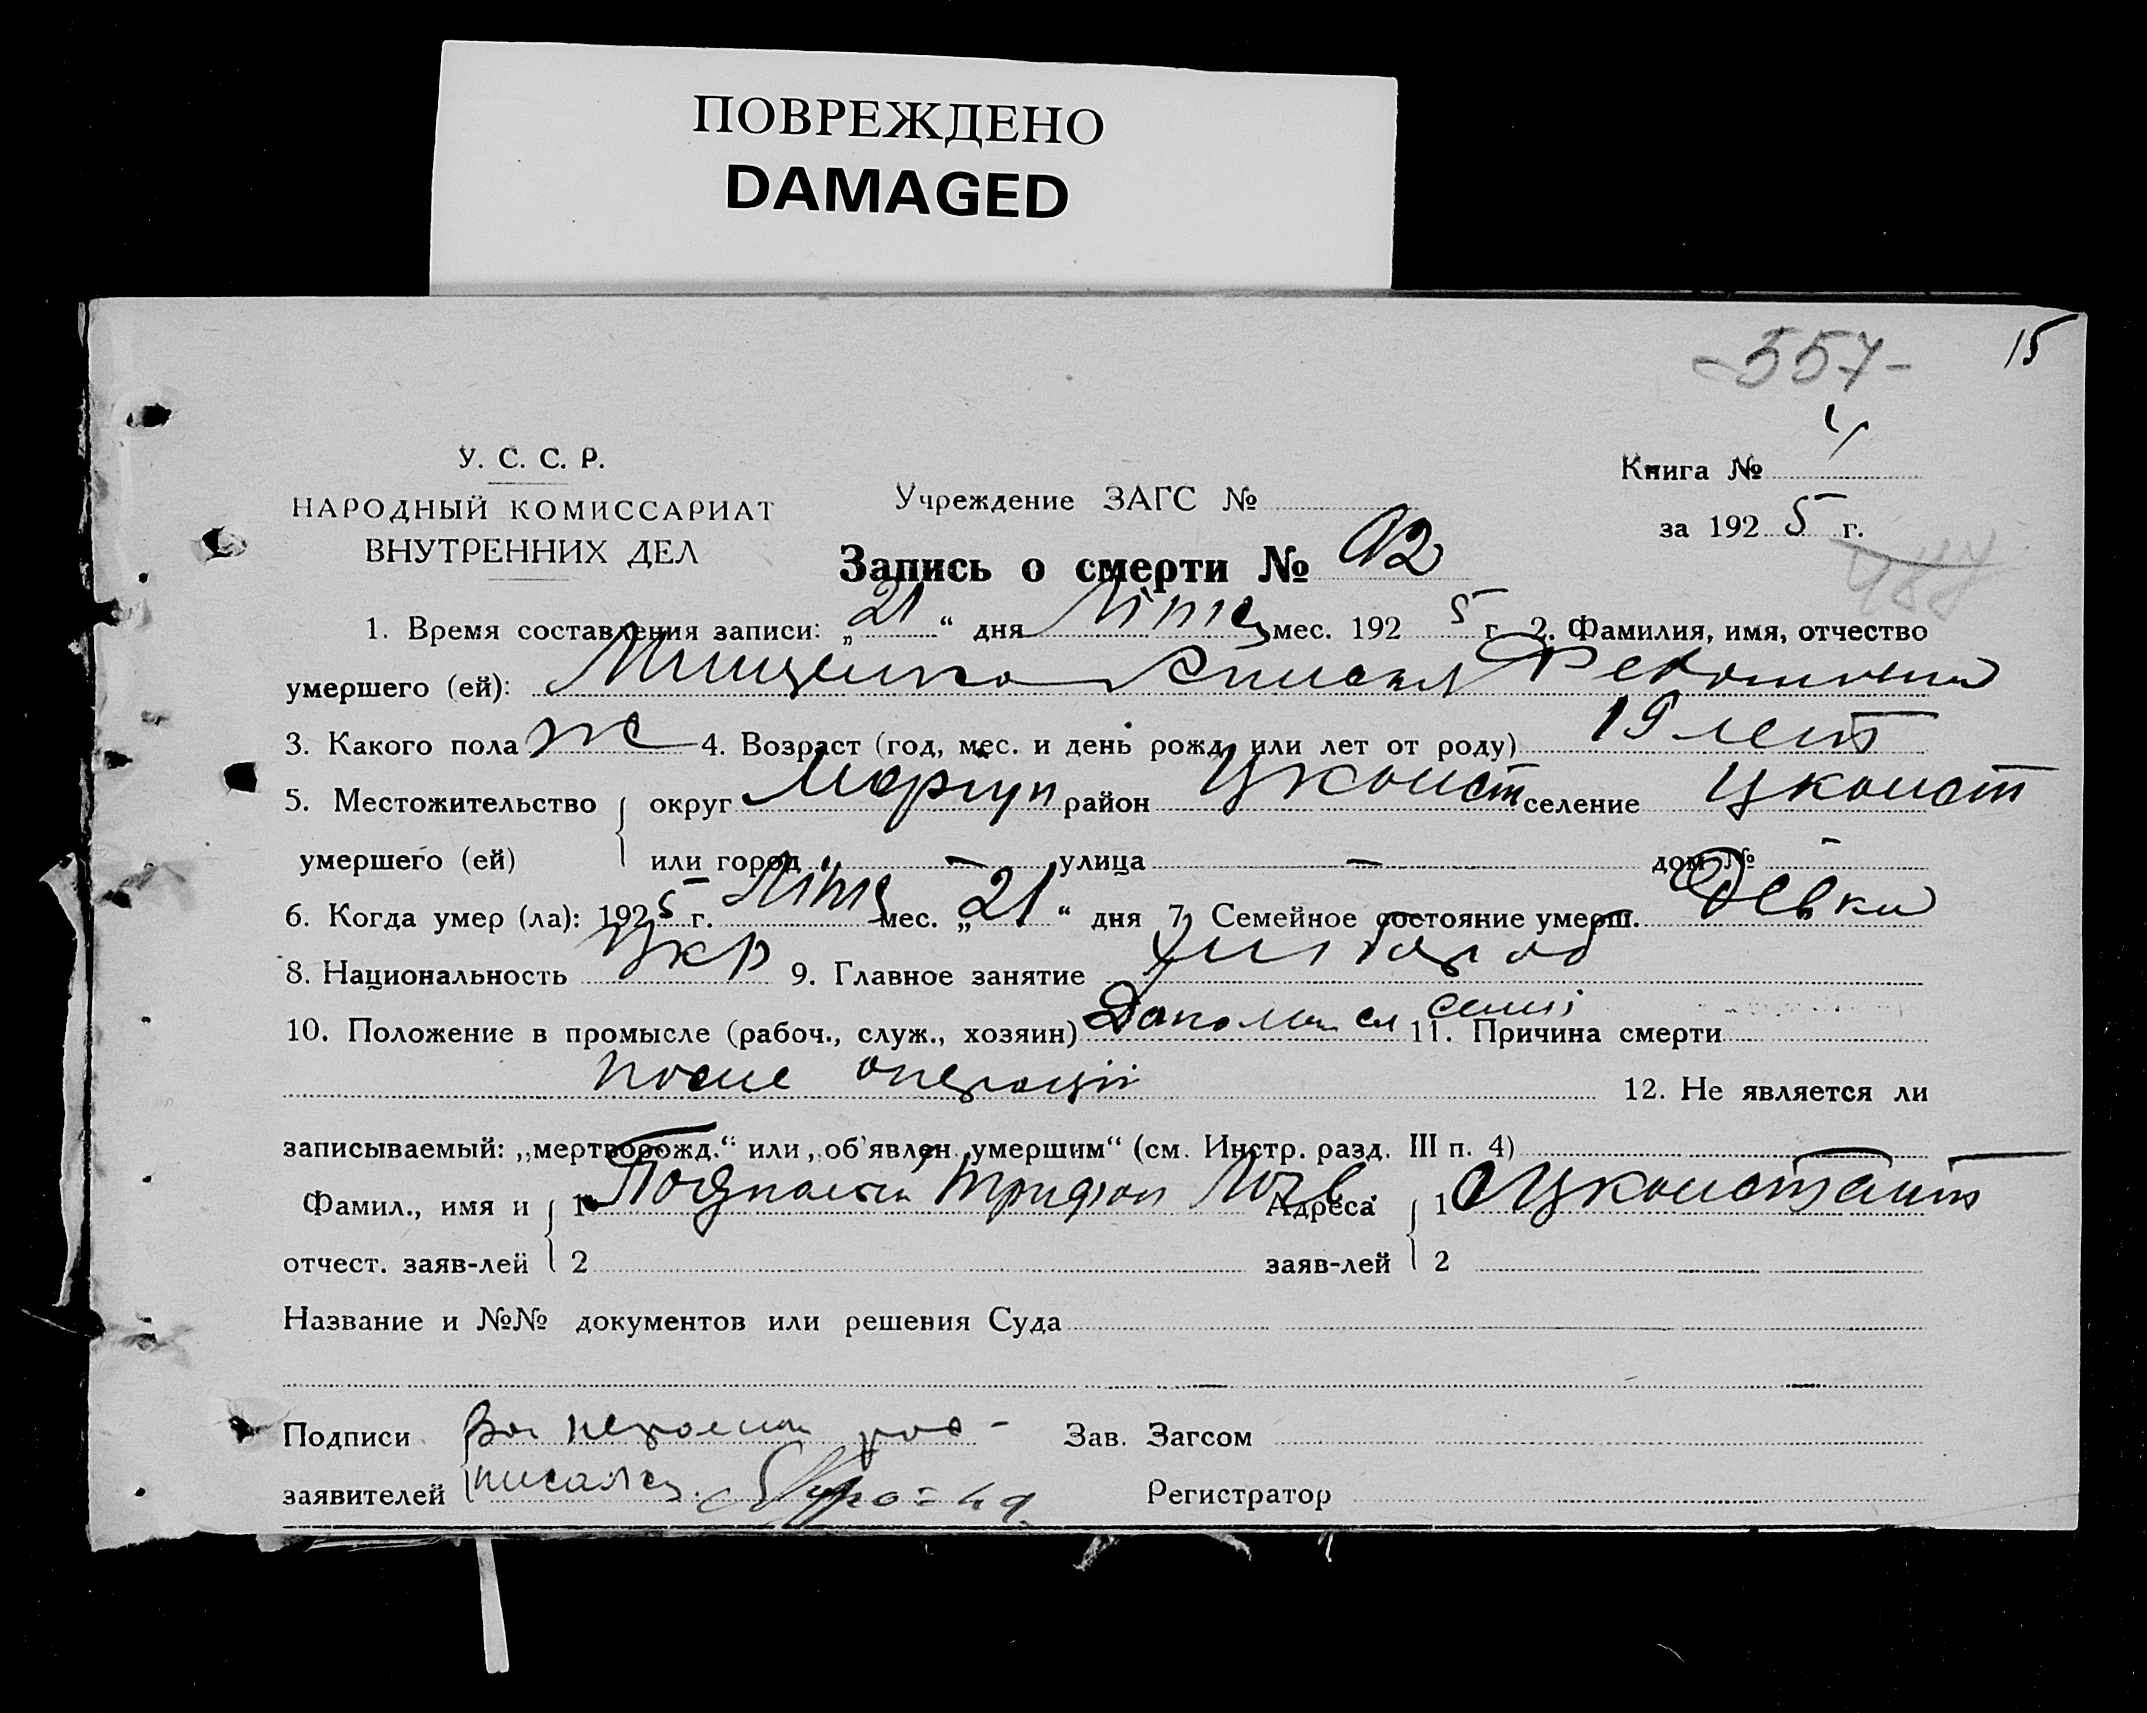 ПОВРЕЖДЕНО
DAMAGED
15
-557-
4
У. С. С. Р.
Книга №
НАРОДНЫЙ КОМИССАРИАТ
Учреждение ЗАГС №
за 192 5 г.
ВНУТРЕННИХ ДЕЛ
487
Запись о смерти № 92
1. Время составления записи: „ 21 “ дня мес. 192 5 г. 2. Фамилия, имя, отчество
умершего (ей): Мищенко
3. Какого пола ж 4. Возраст (год, мес. и день рожд. или лет от роду) 19 лет
5. Местожительство округ Маріуп район Цконст селение Цконст
умершего (ей) или город — улица — дом № -
6. Когда умер (ла): 1925 г. мес. „ 21 “ дня 7. Семейное состояние умерш. Девка
8. Национальность Укр 9. Главное занятие хлібороб
10. Положение в промысле (рабоч., служ., хозяин) семі 11. Причина смерти
после операціі 12. Не является ли
записываемый: „мертворожд.“ или „об'явлен умершим“ (см. Инстр. разд. III п. 4)
Фамил., имя и 1 Трифон Адреса 1 Цконстант
отчест. заяв-лей 2 заяв-лей 2
Название и №№ документов или решения Суда
Подписи За роз- Зав. Загсом
заявителей писался Регистратор